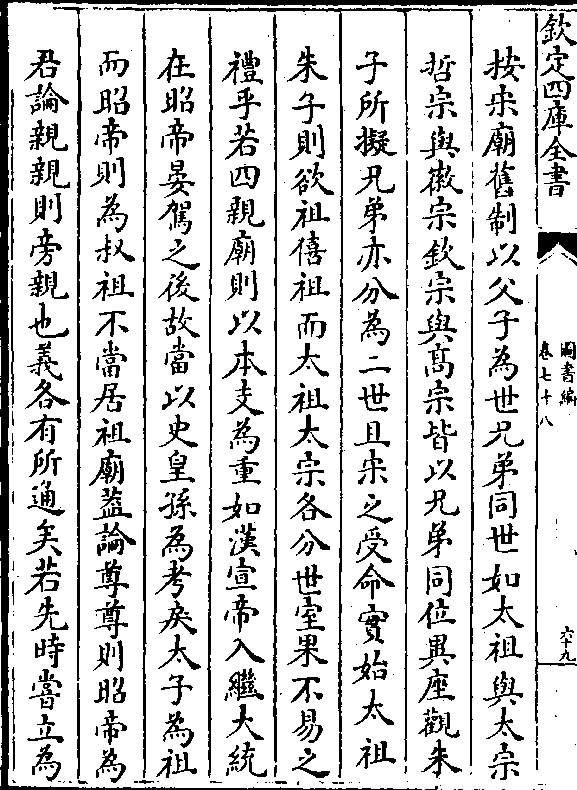 欽定四庫全書
圖書編
卷七十八
六十九
按宋廟舊制以父子為世兄弟同世如太祖與太宗
哲宗與徽宗欽宗與高宗皆以兄弟同位異座觀朱
子所擬兄弟亦分為二世且宋之受命實始太祖
朱子則欲祖僖祖而太祖太宗各分世室果不易之
禮乎若四親廟則以本支為重如漢宣帝入繼大統
在昭帝晏駕之後故當以史皇孫為考戾太子為祖
而昭帝則為叔祖不當居祖廟葢論尊尊則昭帝為
君論親親則旁親也義各有所通矣若先時嘗立為